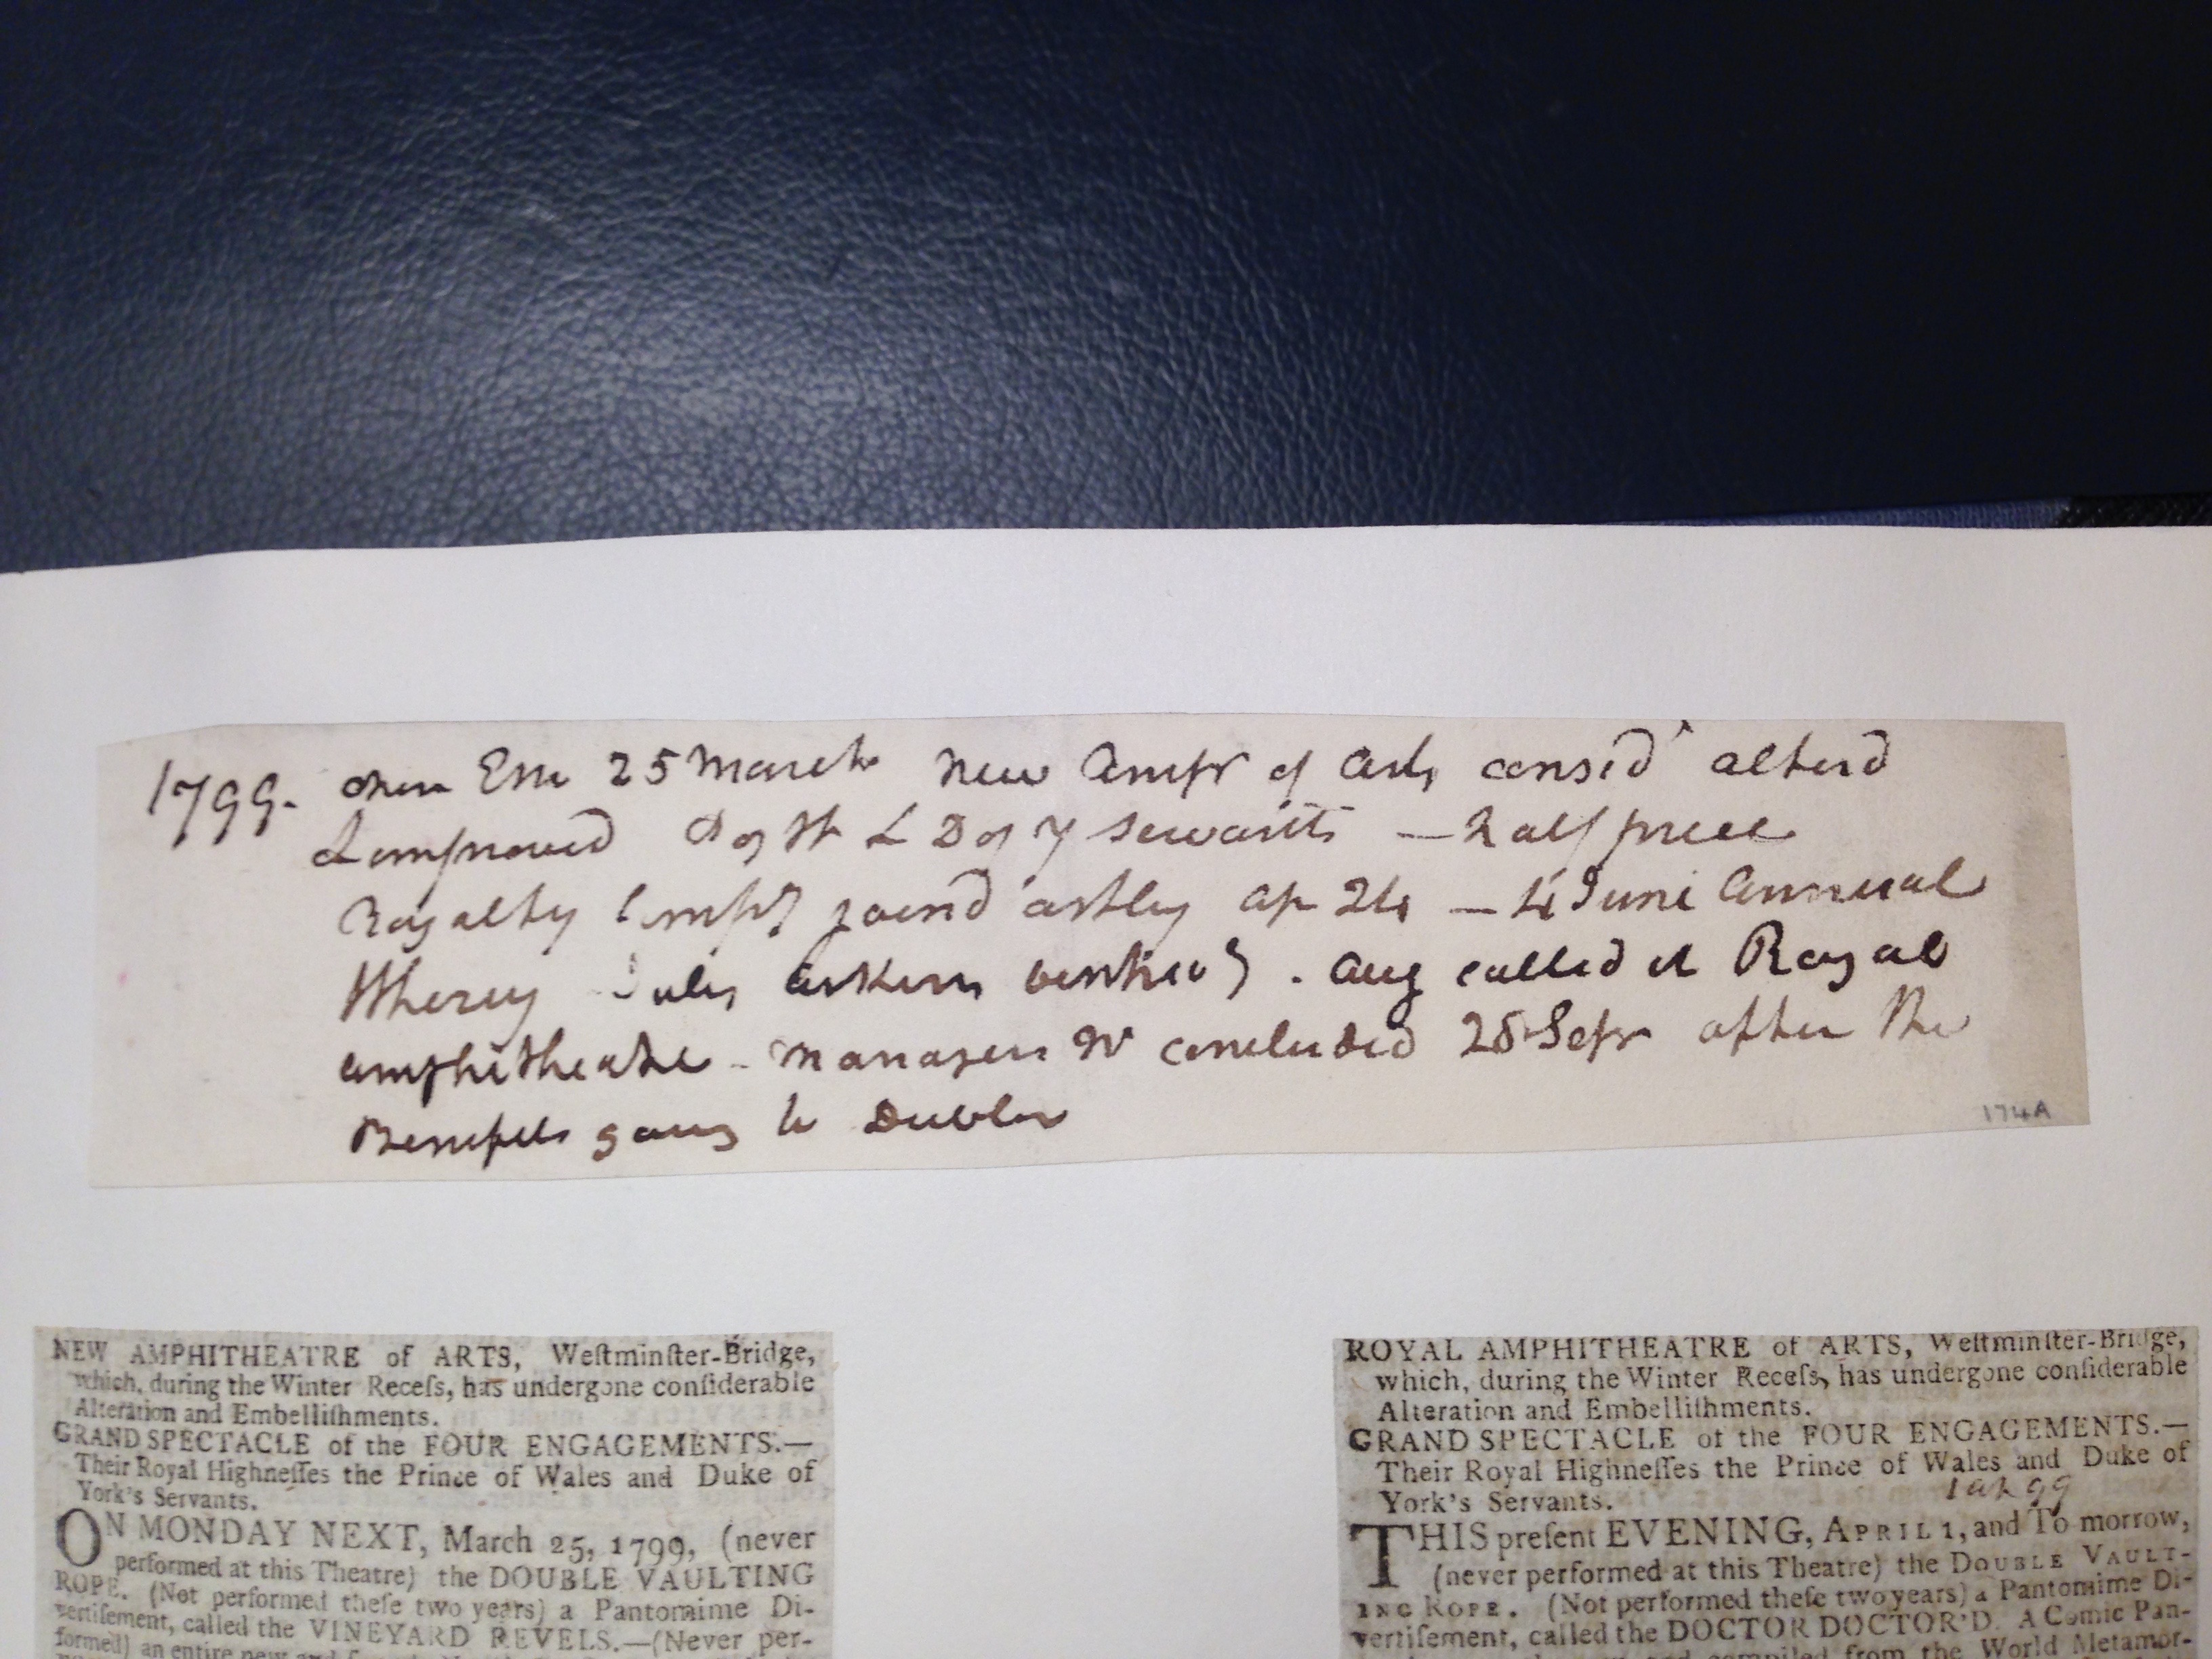 1799. 25 March New Ampr of Arts consid alterd
& improved P of W & D of Y servants — half price
Royalty joind astley ap 24 — 4 June Annual
Wherry . Aug called it Royal
amphitheatre - manager concluded 28 Sepr after the
Benefits going to Dublin
174A
NEW AMPHITHEATRE of ARTS, Weſtminſter-Bridge,
which, during the Winter Receſs, has undergone conſiderable
Alteration and Embelliſhments.
GRAND SPECTACLE of the FOUR ENGAGEMENTS.—
Their Royal Highneſſes the Prince of Wales and Duke of
York's Servants.
ON MONDAY NEXT, March 25, 1799, (never
performed at this Theatre) the DOUBLE VAULTING
ROPE. (Not performed theſe two years) a Pantomime Di-
vertiſement, called the VINEYARD REVELS.—(Never per-
formed) an entire new and
ROYAL AMPHITHEATRE of ARTS, Weſtminſter-Bridge,
which, during the Winter Receſs, has undergone conſiderable
Alteration and Embelliſhments.
GRAND SPECTACLE of the FOUR ENGAGEMENTS.—
Their Royal Highneſſes the Prince of Wales and Duke of
York's Servants.
1 ap 99
THIS preſent EVENING, APRIL 1, and To morrow,
(never performed at this Theatre) the DOUBLE VAULT-
ING ROPE. (Not performed theſe two years) a Pantomime Di-
vertiſement, called the DOCTOR DOCTOR'D. A Comic Pan-
compiled from the World Metamor-